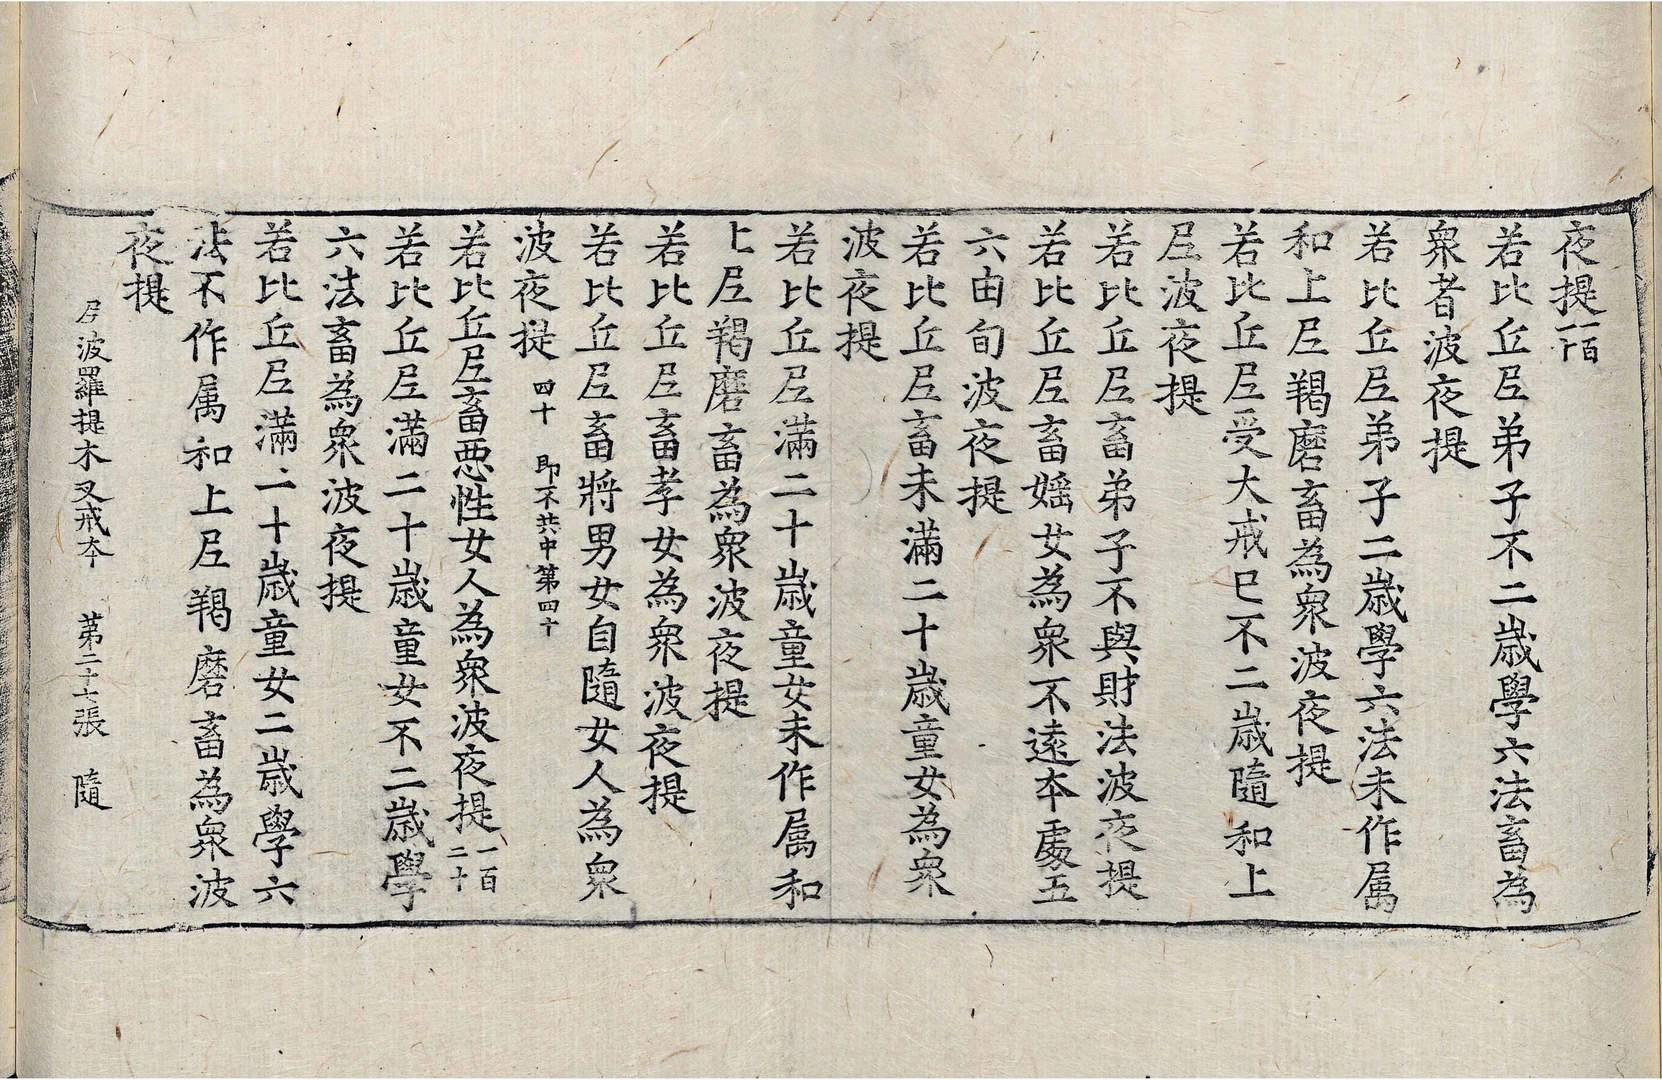 夜提一百一十
若比丘尼弟子不二歲學六法畜為
衆者波夜提
若比丘尼弟子二歲學六法未作属
和上尼羯磨畜為衆波夜提
若比丘尼受大戒已不二歲隨和上
尼波夜提
若比丘尼畜弟子不與財法波夜提
若比丘尼畜婬女為衆不遠本處五
六由旬波夜提
若比丘尼畜未滿二十歲童女為衆
波夜提
若比丘尼滿二十歲童女未作属和
上尼羯磨畜為衆波夜提
若比丘尼畜孝女為衆波夜提
若比丘尼畜將男女自隨女人為衆
波夜提 四十 即不共中第四十
若比丘尼畜悪性女人為衆波夜提一百二十
若比丘尼滿二十歲童女不二歲學
六法畜為衆波夜提
若比丘尼滿二十歲童女二歲學六
法不作属和上尼羯磨畜為衆波
夜提
尼波羅提木叉戒本 第二十七張 隨